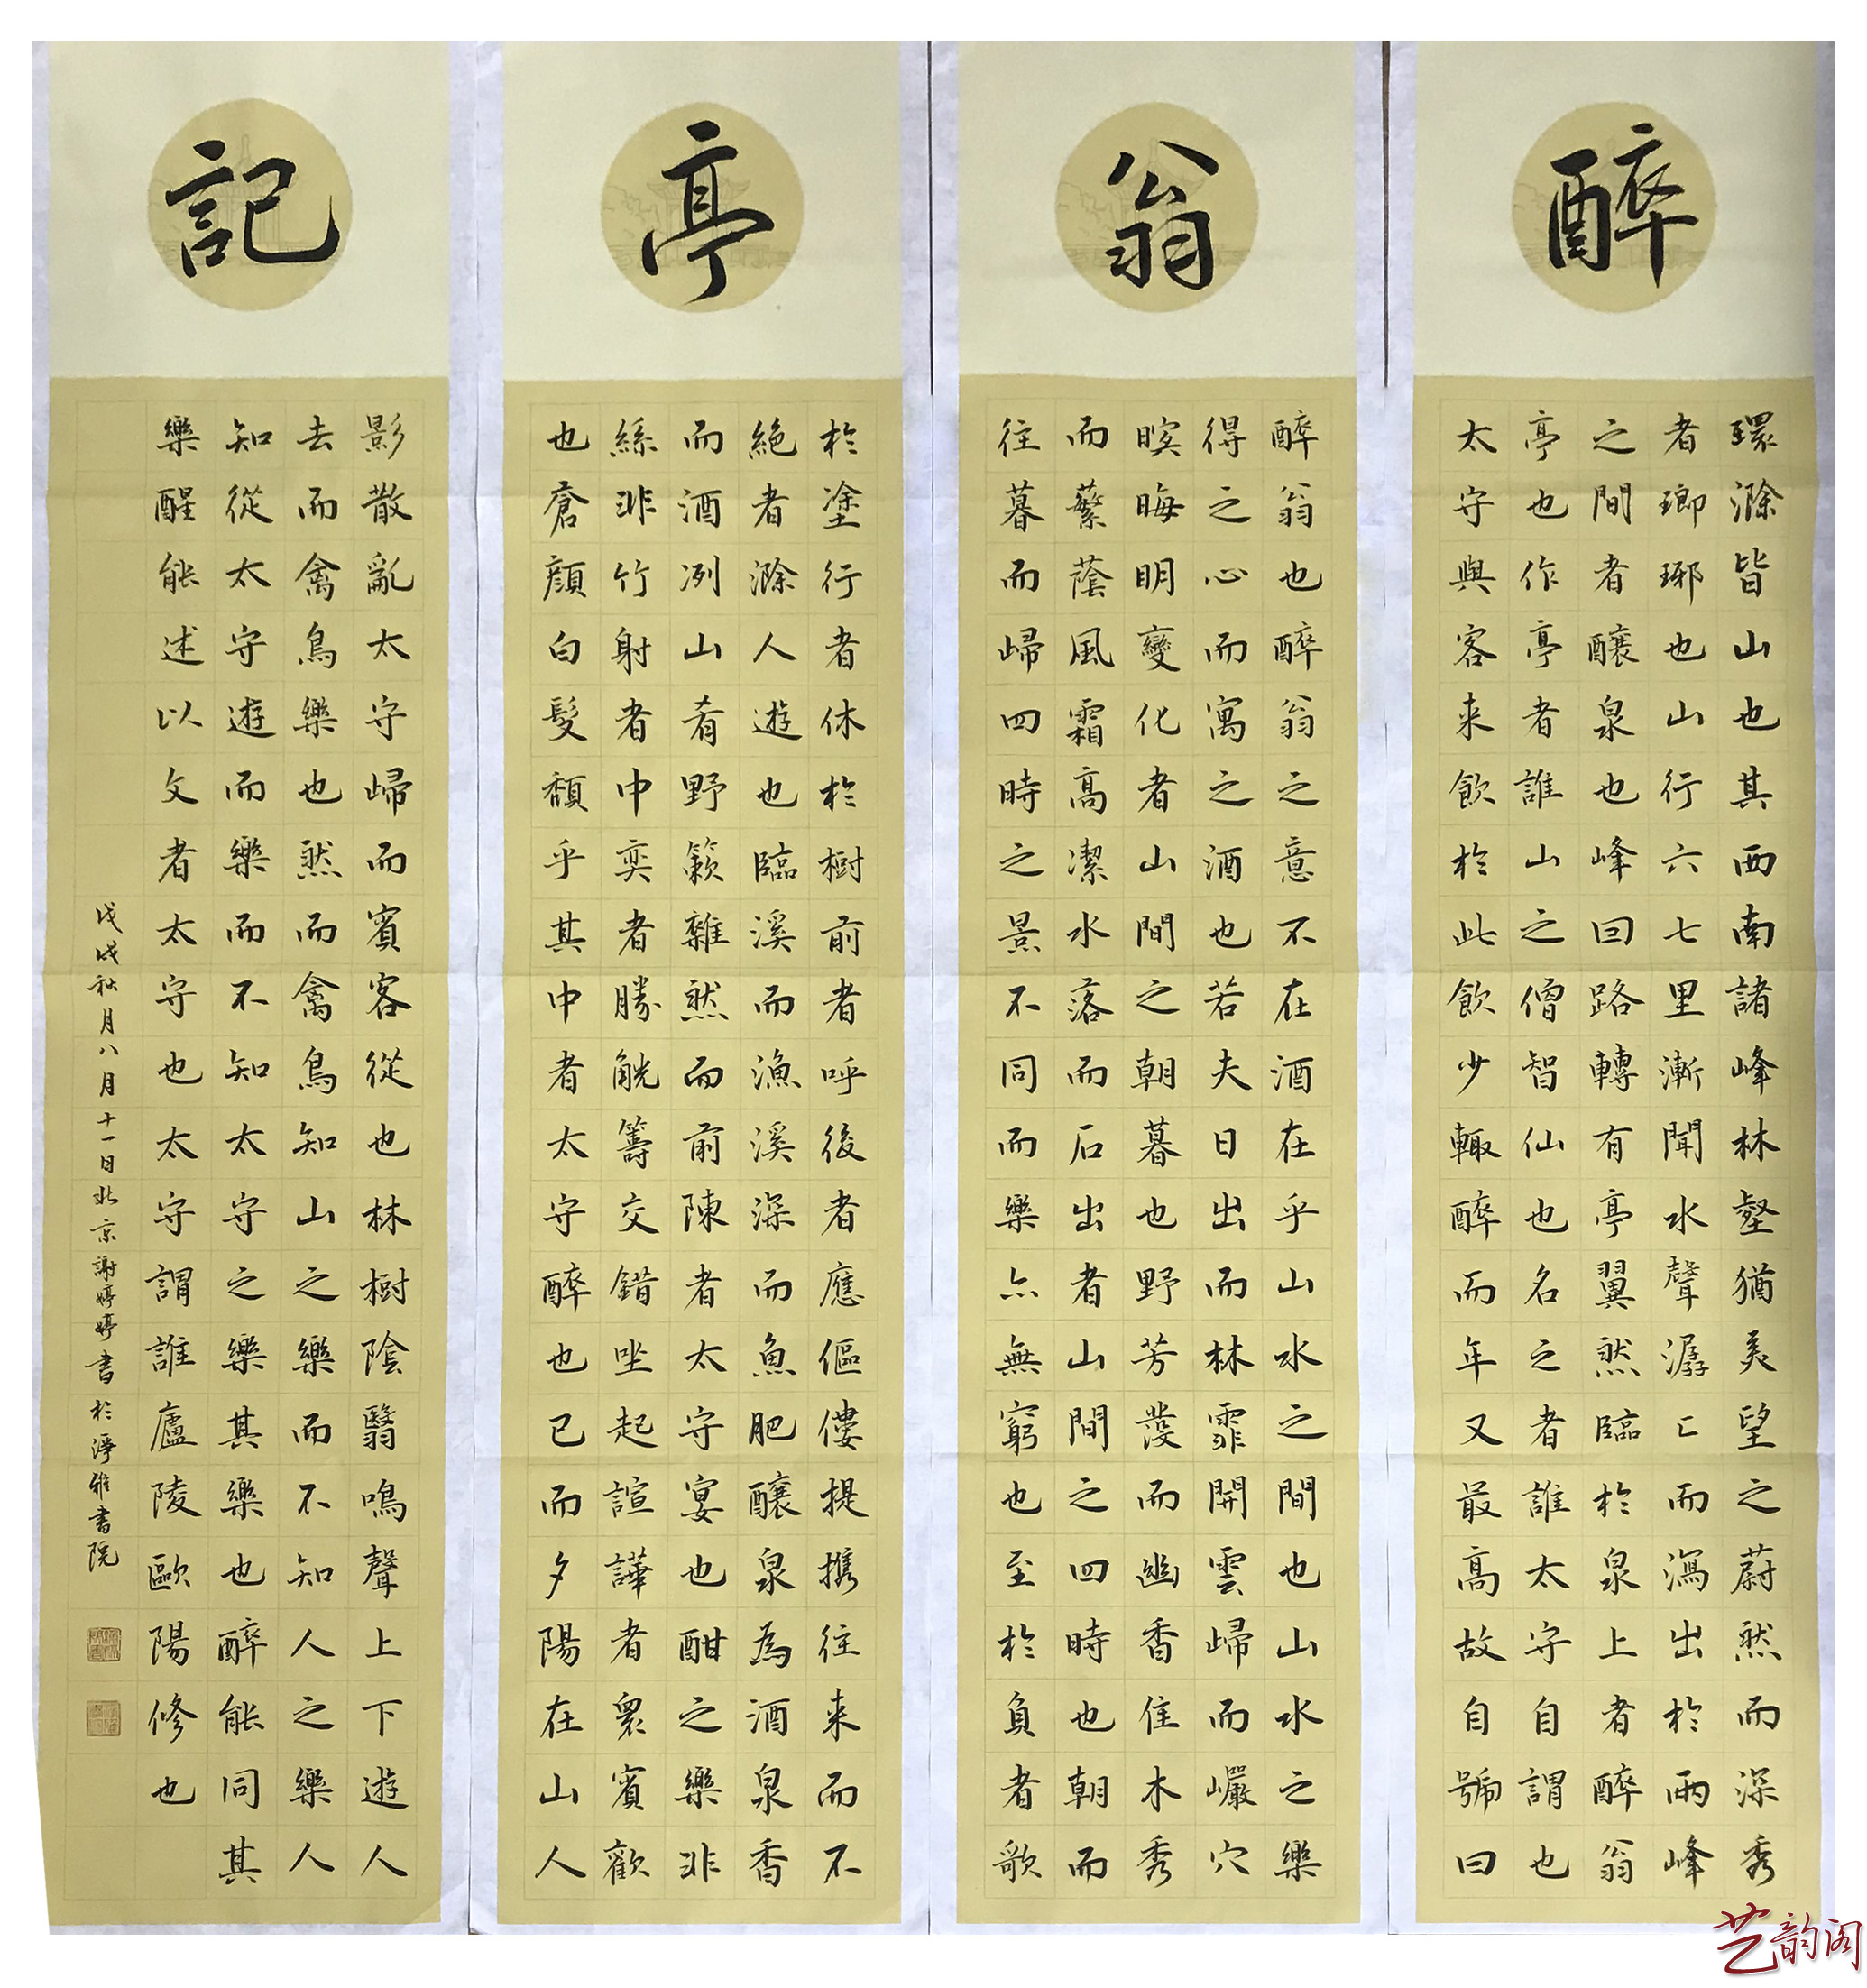 醉
環滁皆山也其西南諸峰林壑猶美望之蔚然而深秀
者瑯琊也山行六七里漸聞水聲潺〻而瀉出於兩峰
之間者釀泉也峰回路轉有亭翼然臨於泉上者醉翁
亭也作亭者誰山之僧智仙也名之者誰太守自謂也
太守與客来飲於此飲少輒醉而年又最高故自號曰
翁
醉翁也醉翁之意不在酒在乎山水之間也山水之樂
得之心而寓之酒也若夫日出而林霏開雲歸而巖穴
暝晦明變化者山間之朝暮也野芳發而幽香佳木秀
而繁蔭風霜高潔水落而石出者山間之四時也朝而
往暮而歸四時之景不同而樂亦無窮也至於負者歌
亭
於塗行者休於樹前者呼後者應傴僂提攜往来而不
絕者滁人遊也臨溪而漁溪深而魚肥釀泉為酒泉香
而酒洌山肴野簌雜然而前陳者太守宴也酣之樂非
絲非竹射者中奕者勝觥籌交錯坐起諠譁者眾賓歡
也蒼顏白髮頹乎其中者太守醉也已而夕陽在山人
記
影散亂太守歸而賓客從也林樹陰翳鳴聲上下遊人
去而禽鳥樂也然而禽鳥知山之樂而不知人之樂人
知從太守遊而樂而不知太守之樂其樂也醉能同其
樂醒能述以文者太守也太守謂誰廬陵歐陽修也
戊戌秋月八月十一日北京謝婷婷書於淨雅書院
艺韵阁